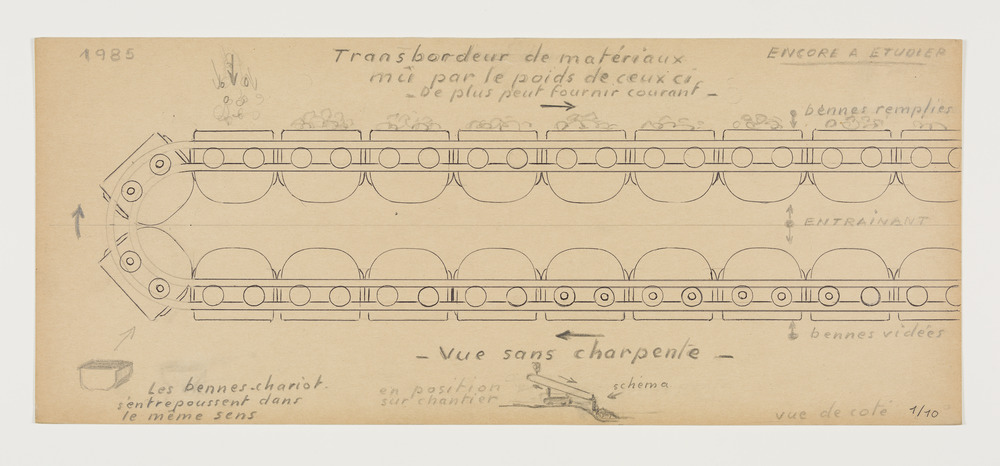 1985
Transbordeur de matériaux
mû par le poids de ceux ci,
_ De plus peut fournir courant _
ENCORE A ETUDIER
bennes remplies
ENTRAÎNANT
bennes vidées
_ Vue sans charpente _
Les bennes-chariot.
s'entrepoussent dans
le même sens
en position
sur chantier
schéma
vue de coté 1/10